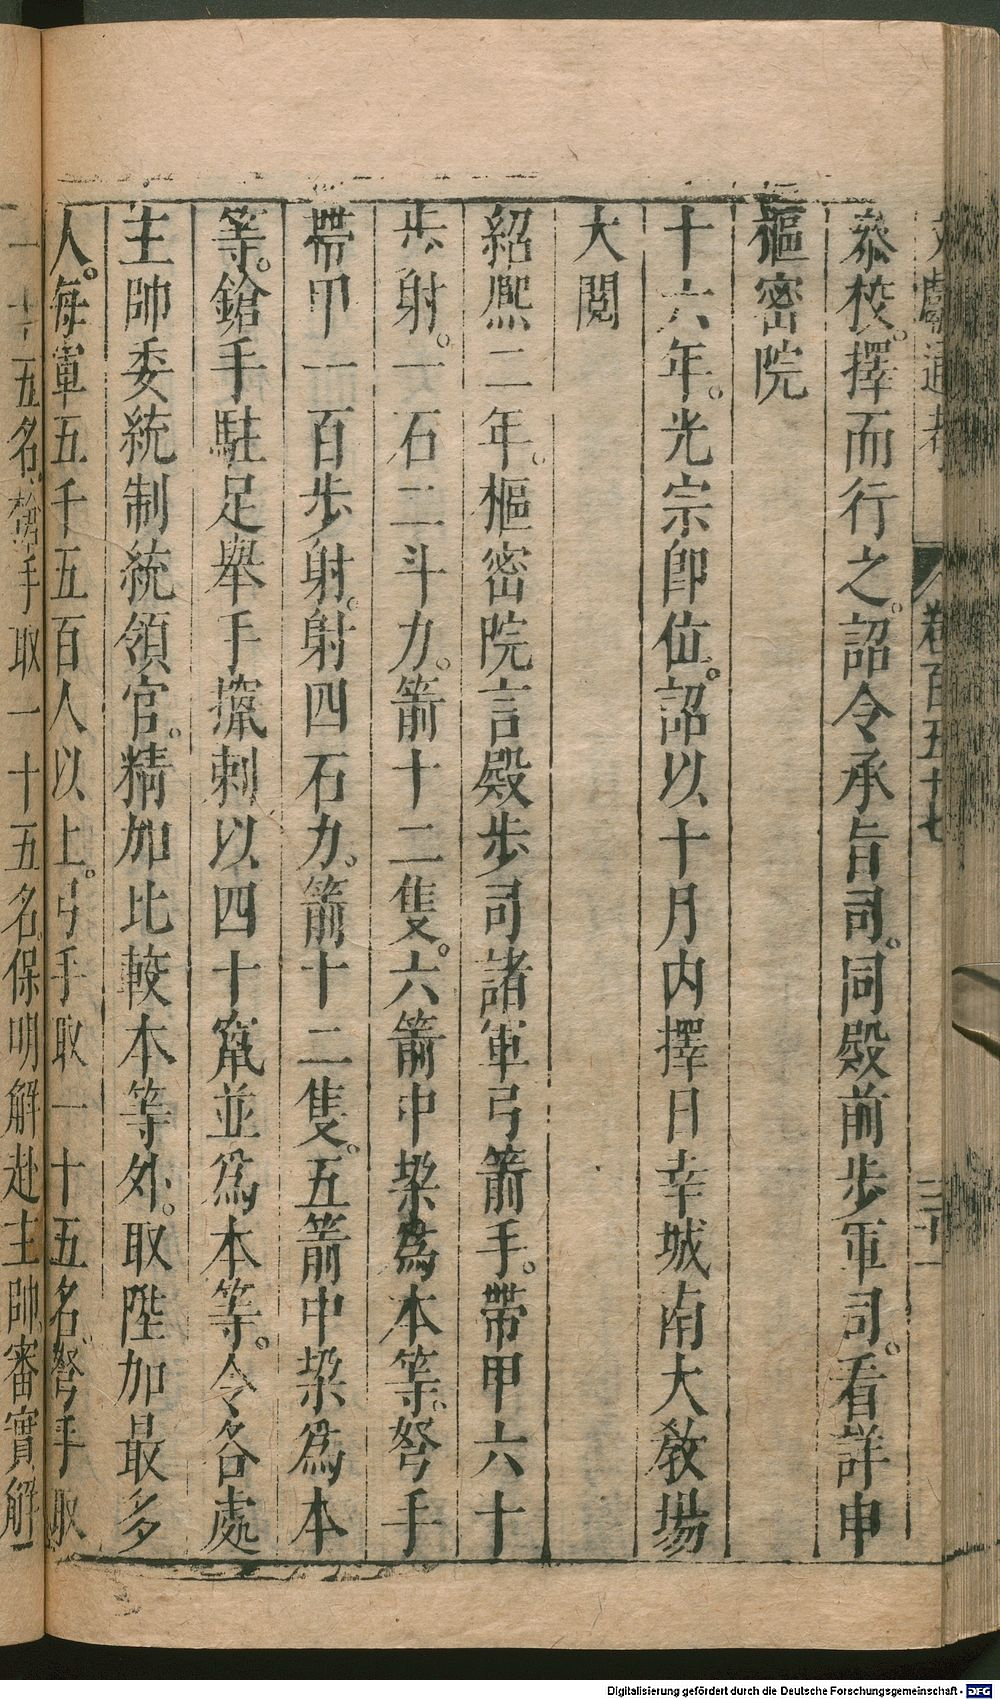 文獻通考 卷百五十七 三十一
泰校。擇而行之。詔令承旨司。同殿前步軍司。看詳申
樞密院
十六年。光宗卽位。詔以十月内擇日幸城南大教場
大閱
紹熈二年。樞密院言殿步司諸軍弓箭手。帶甲六十
步射。一石二斗力。箭十二隻。六箭中垜爲本等。弩手
帶甲一百步射。射四石力。箭十二隻。五箭中垜爲本
等。鎗手駐足舉手攛刺以四十攛並爲本等。令各處
主帥委統制統領官。精加比較本等外。取陞加最多
人。每軍五千五百人以上。弓手取一十五名。弩手取
一十五名。鎗手取一十五名。保明解赴主帥審實解
Digitalisierung gefördert durch die Deutsche Forschungsgemeinschaft - DFG